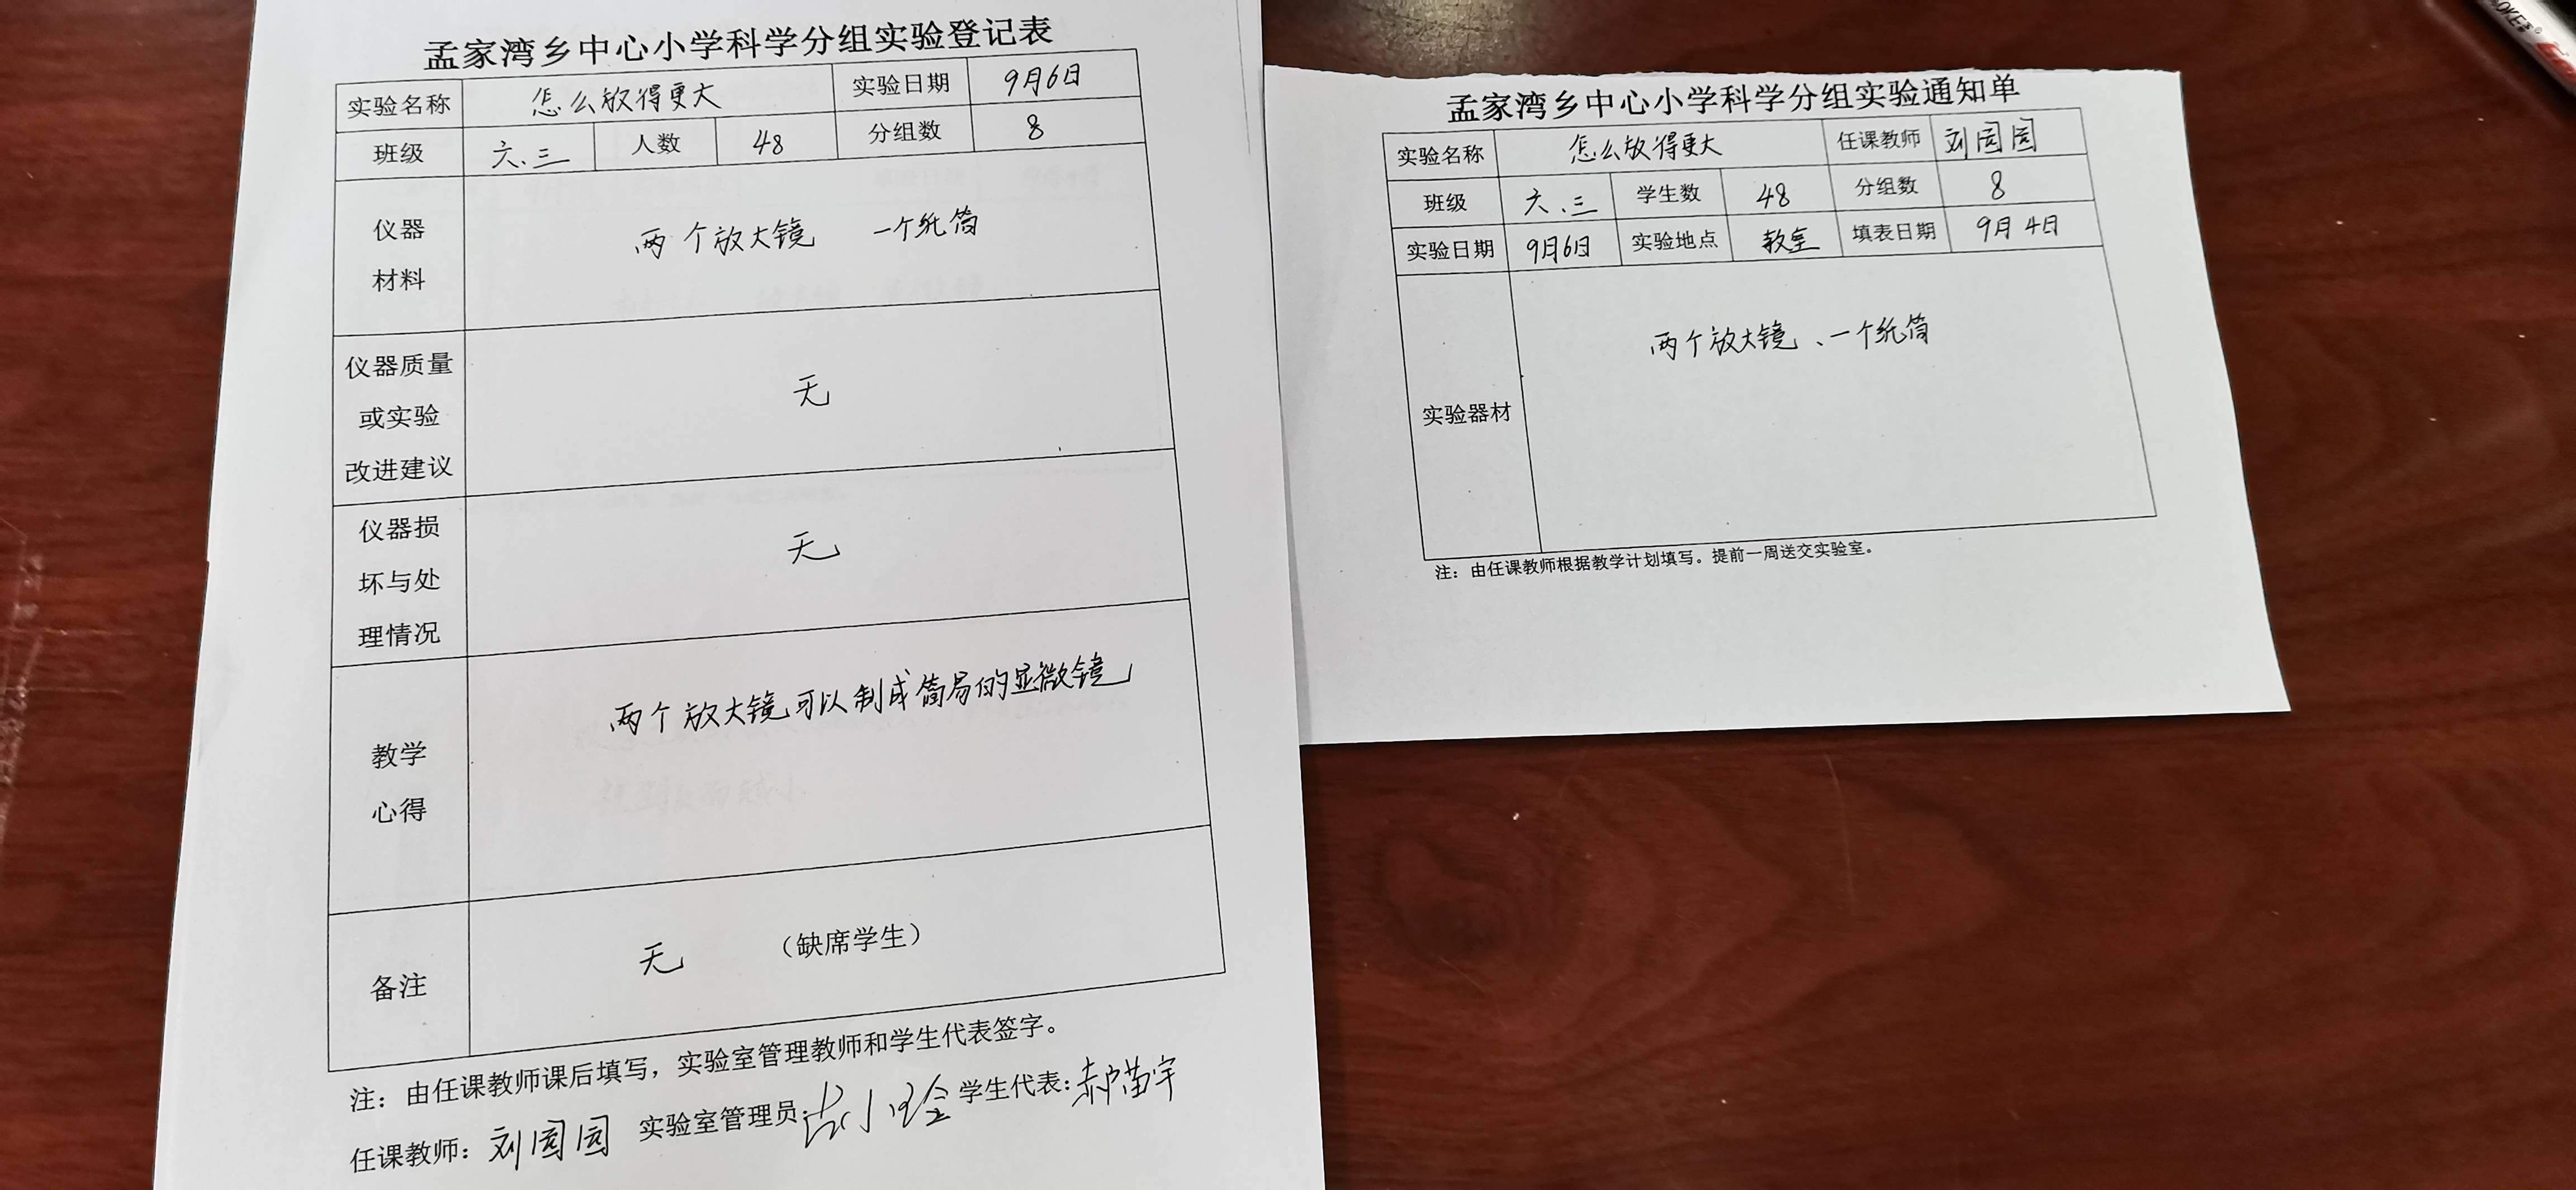 孟家湾乡中心小学科学分组实验登记表
实验名称 怎么放得更大 实验日期 9月6日
班级 六.三 人数 48 分组数 8
仪器
材料
两个放大镜 一个纸筒
仪器质量
或实验
改进建议
无
仪器损
坏与处
理情况
无
教学
心得
两个放大镜可以制成简易的显微镜
备注
无 （缺席学生）
注：由任课教师课后填写，实验室管理教师和学生代表签字。
任课教师：刘园园 实验室管理员: 学生代表:郝苗宇
孟家湾乡中心小学科学分组实验通知单
实验名称 怎么放得更大 任课教师 刘园园
班级 六.三 学生数 48 分组数 8
实验日期 9月6日 实验地点 教室 填表日期 9月4日
实验器材
两个放大镜、一个纸筒
注：由任课教师根据教学计划填写。提前一周送交实验室。